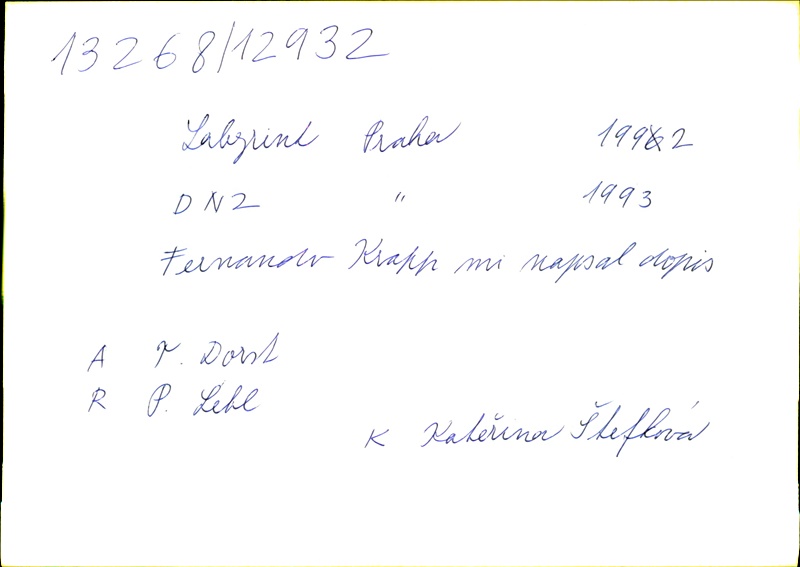 13268/12932
Labyrint Praha 1992
DNZ " 1993
Fernando Krapp mi napsal dopis
A T. Dorst
R P. Lébl
K Kateřina Štefková